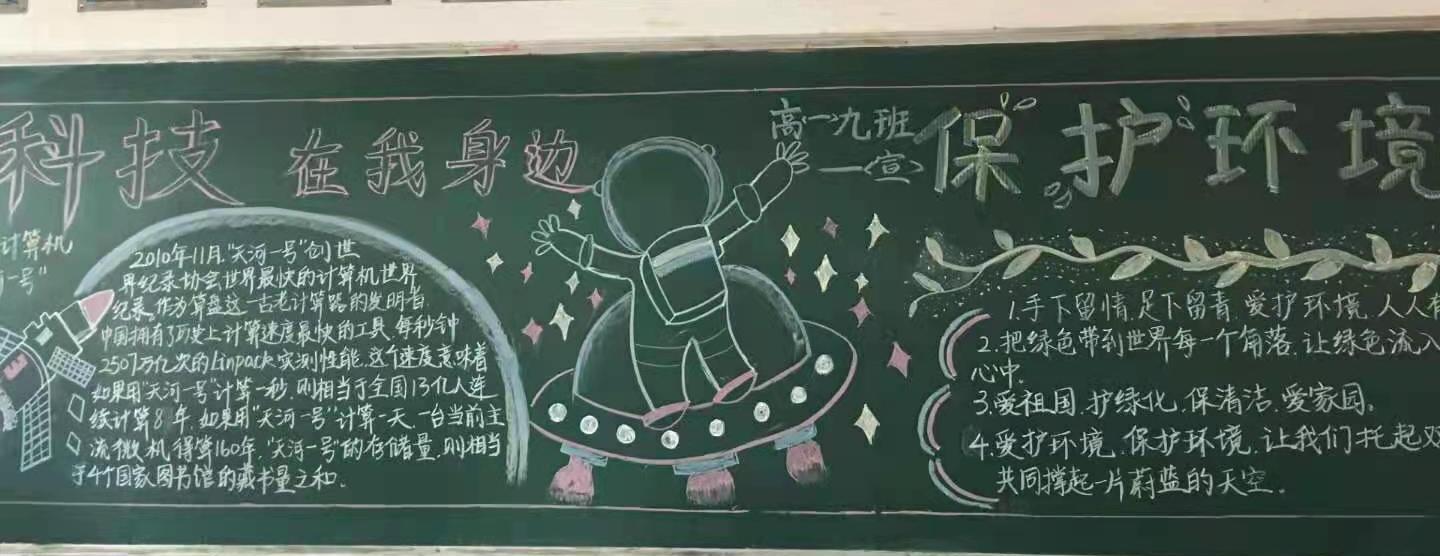 科技在我身边
计算机
一号"
2010年11月,"天河一号"创世
界纪录协会世界最快的计算机世界
纪录.作为算盘这一古老计算器的发明者,
中国拥有了历史上计算速度最快的工具.每秒钟
2507万亿次的Linpack实测性能.这个速度意味着
如果用"天河一号"计算一秒,则相当于全国13亿人连
续计算8年.如果用"天河一号"计算一天,一台当前主
流微机得算160年."天河一号"的存储量,则相当
于4个国家图书馆的藏书量之和.
高一九班
一(宣)
保护环境
1.手下留情,足下留青,爱护环境,人人有
2.把绿色带到世界每一个角落,让绿色流入
心中.
3.爱祖国,护绿化,保清洁,爱家园.
4.爱护环境,保护环境,让我们托起双
共同撑起一片蔚蓝的天空.